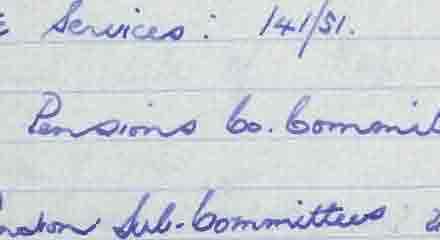 Services: 141/51.
Pensions Co. Commit
Sub-Committees